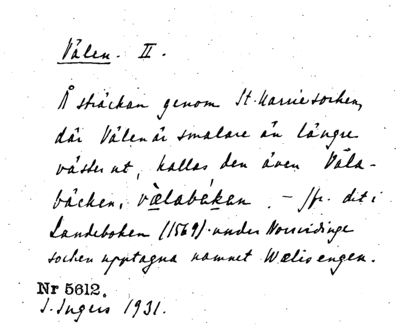 Vålen. II.
Å sträckan genom St. Harrie socken,
där Vålen är smalare än längre
väster ut, kallas den även Våla-
bäcken, vælabækæn. – Jfr. det i
Landeboken (1569) under Norrvidinge
socken upptagna namnet Wælis engen.
Nr 5612.
I. Ingers 1931.